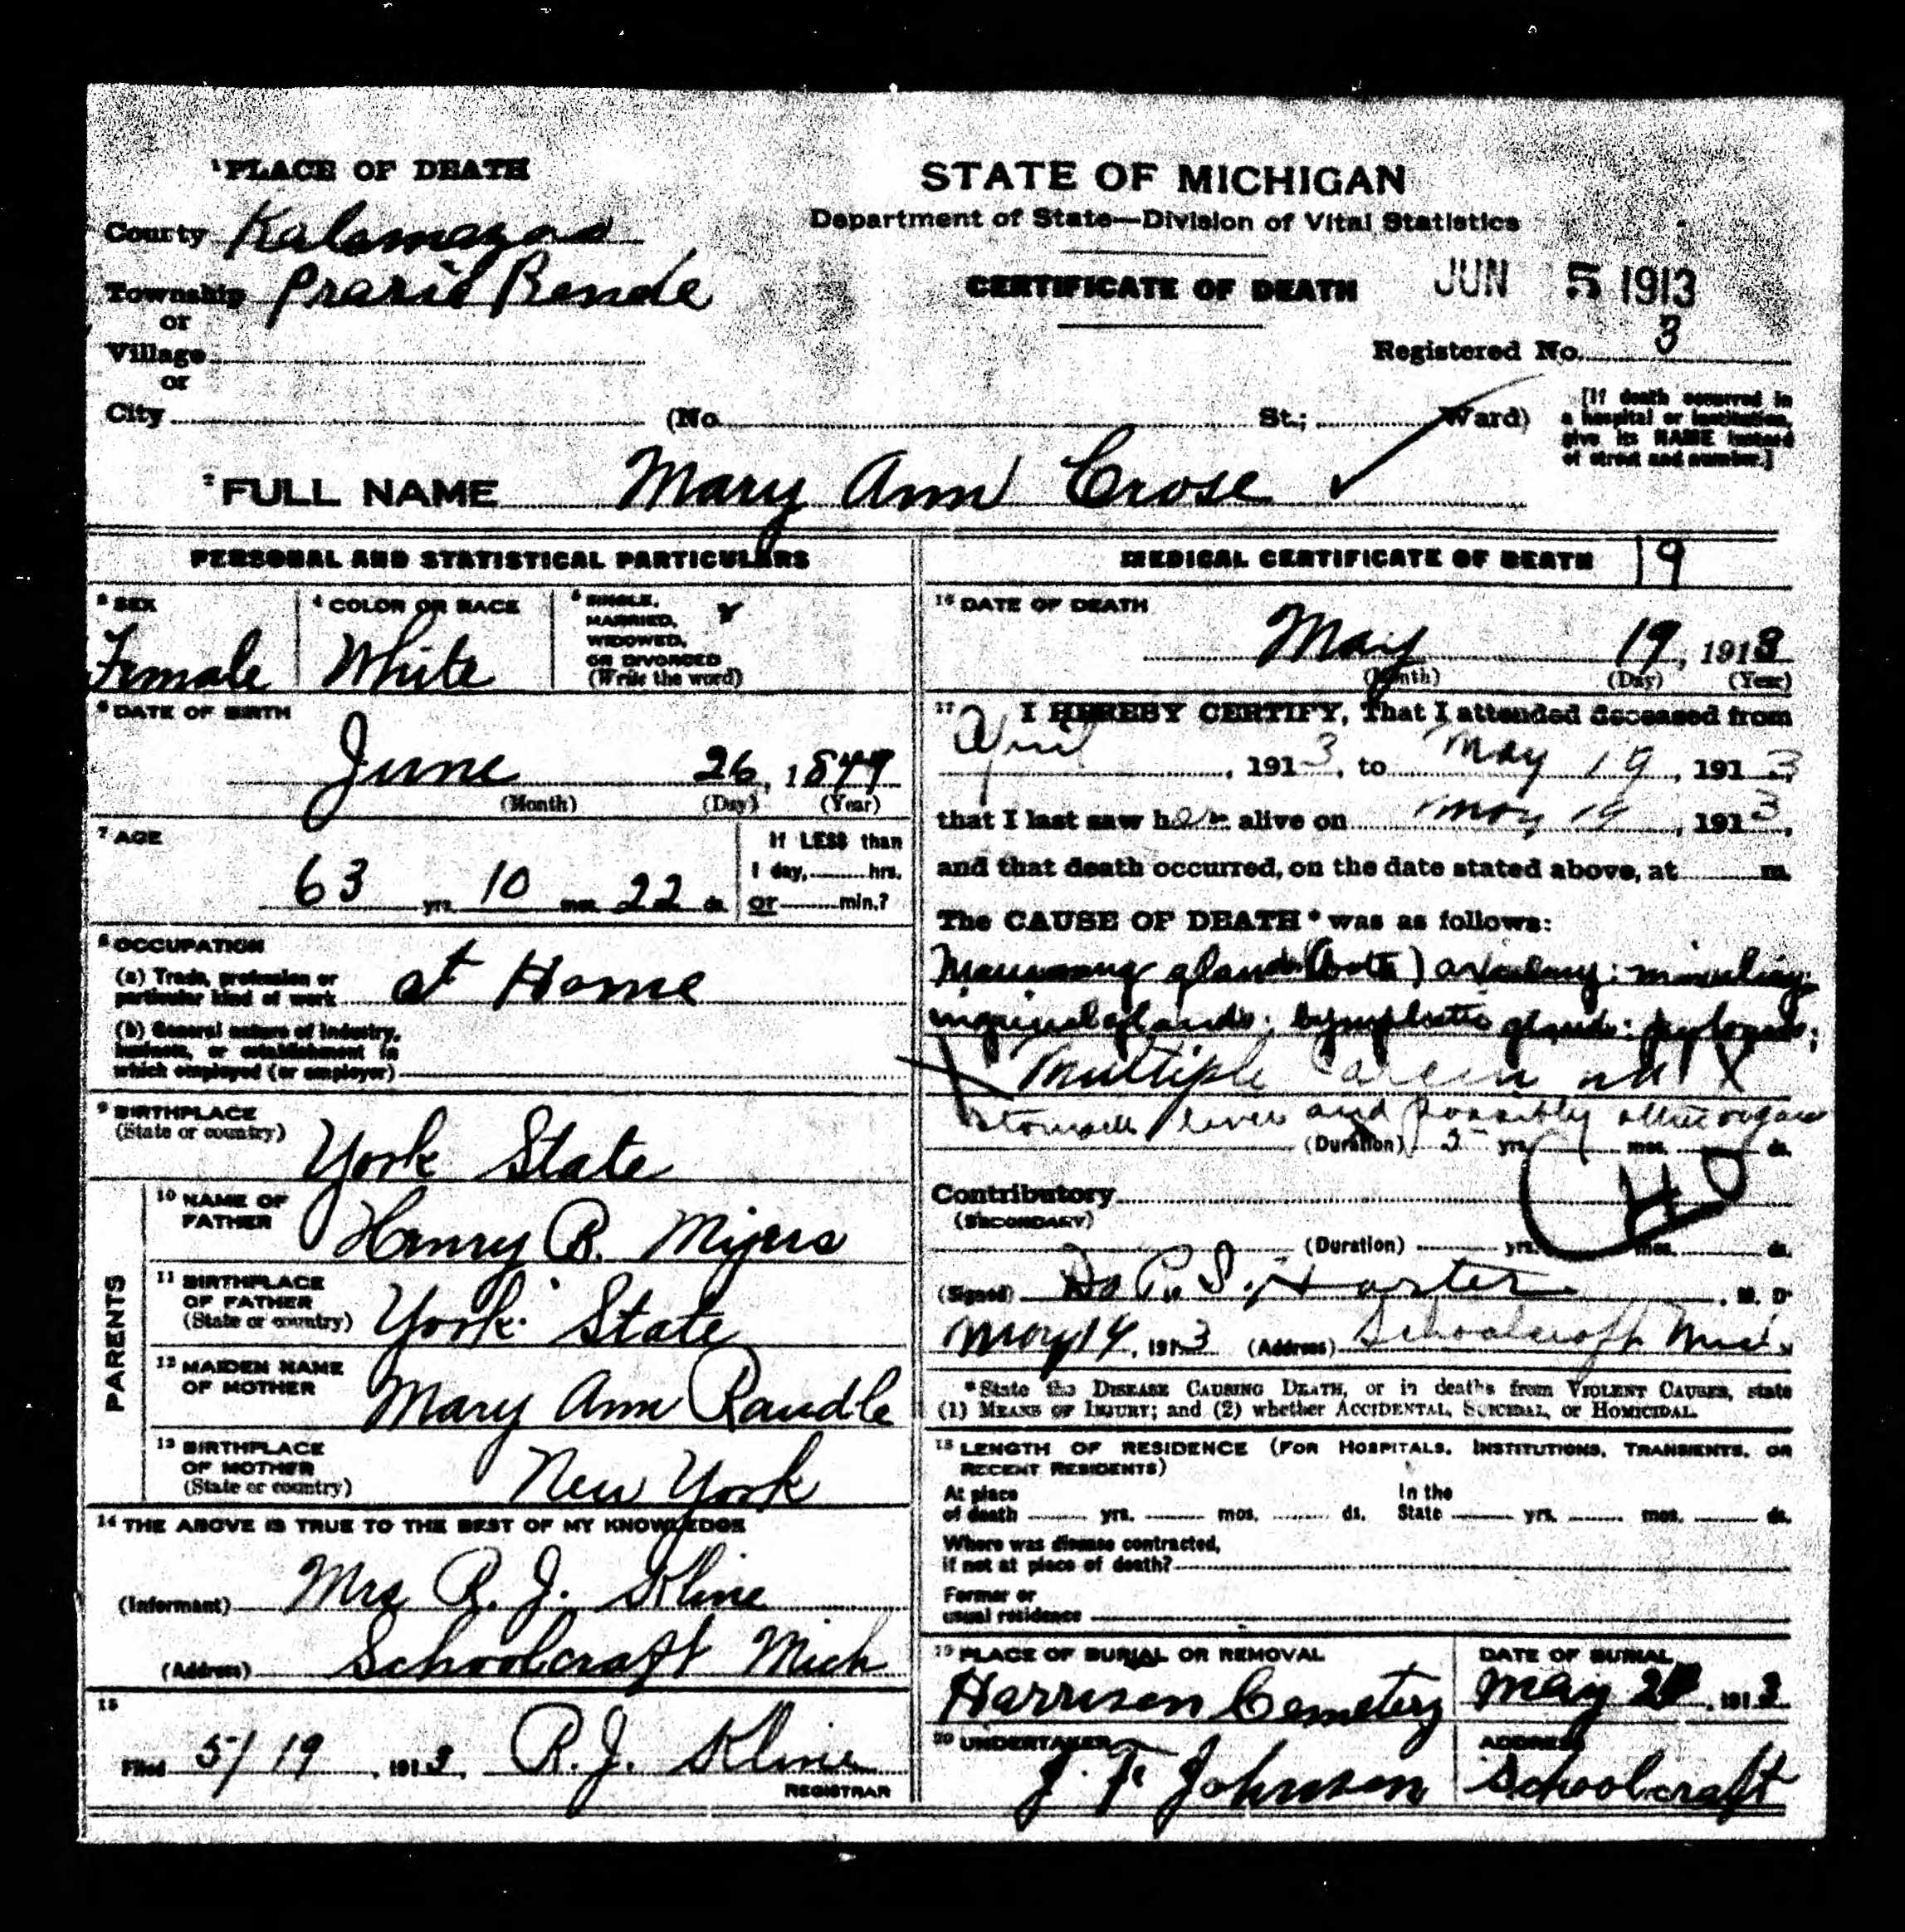 1 PLACE OF DEATH
County Kalamazoo
Township Prarie Ronde
or
Village
or
City (No. St.; Ward)
STATE OF MICHIGAN
Department of State—Division of Vital Statistics
CERTIFICATE OF DEATH
JUN 5 1913
Registered No. 3
[If death occurred in
a hospital or institution,
give its NAME instead
of street and number.]
2 FULL NAME Mary Ann Crose
PERSONAL AND STATISTICAL PARTICULARS
3 SEX
Female
4 COLOR OR RACE
White
5 SINGLE,
MARRIED,
WIDOWED,
OR DIVORCED
(Write the word)
6 DATE OF BIRTH
June 26, 1849
(Month) (Day) (Year)
7 AGE
63 yrs. 10 mos. 22 ds.
If LESS than
1 day, hrs.
or min.?
8 OCCUPATION
(a) Trade, profession or
particular kind of work at Home
(b) General nature of industry,
business, or establishment in
which employed (or employer)
9 BIRTHPLACE
(State or country)
York State
PARENTS
10 NAME OF
FATHER
Henry B. Myers
11 BIRTHPLACE
OF FATHER
(State or country)
York State
12 MAIDEN NAME
OF MOTHER
Mary Ann Randle
13 BIRTHPLACE
OF MOTHER
(State or country)
New York
14 THE ABOVE IS TRUE TO THE BEST OF MY KNOWLEDGE
(Informant) Mrs R. J. Kline
(Address) Schoolcraft Mich
15
Filed 5/19, 1913, R. J. Kline
REGISTRAR
MEDICAL CERTIFICATE OF DEATH 19
16 DATE OF DEATH
May 19, 1913
(Month) (Day) (Year)
17 I HEREBY CERTIFY, That I attended deceased from
April, 1913, to May 19, 1913,
that I last saw her alive on May 19, 1913,
and that death occurred, on the date stated above, at m.
The CAUSE OF DEATH* was as follows:
Mammary glands (both) axillary;
inguinal glands; lymphatic glands;
Multiple
Stomach liver and possibly other organs
(Duration) yrs. mos. ds.
Contributory
(SECONDARY)
(Duration) yrs. mos. ds.
(Signed) M. D.
May 19, 1913 (Address) Schoolcraft Mich
*State the DISEASE CAUSING DEATH, or in deaths from VIOLENT CAUSES, state
(1) MEANS OF INJURY; and (2) whether ACCIDENTAL, SUICIDAL, or HOMICIDAL.
18 LENGTH OF RESIDENCE (FOR HOSPITALS, INSTITUTIONS, TRANSIENTS, OR
RECENT RESIDENTS)
At place
of death yrs. mos. ds.
In the
State yrs. mos. ds.
Where was disease contracted,
if not at place of death?
Former or
usual residence
19 PLACE OF BURIAL OR REMOVAL
Harrison Cemetery
DATE OF BURIAL
May 1913
20 UNDERTAKER
J. F. Johnson
ADDRESS
Schoolcraft